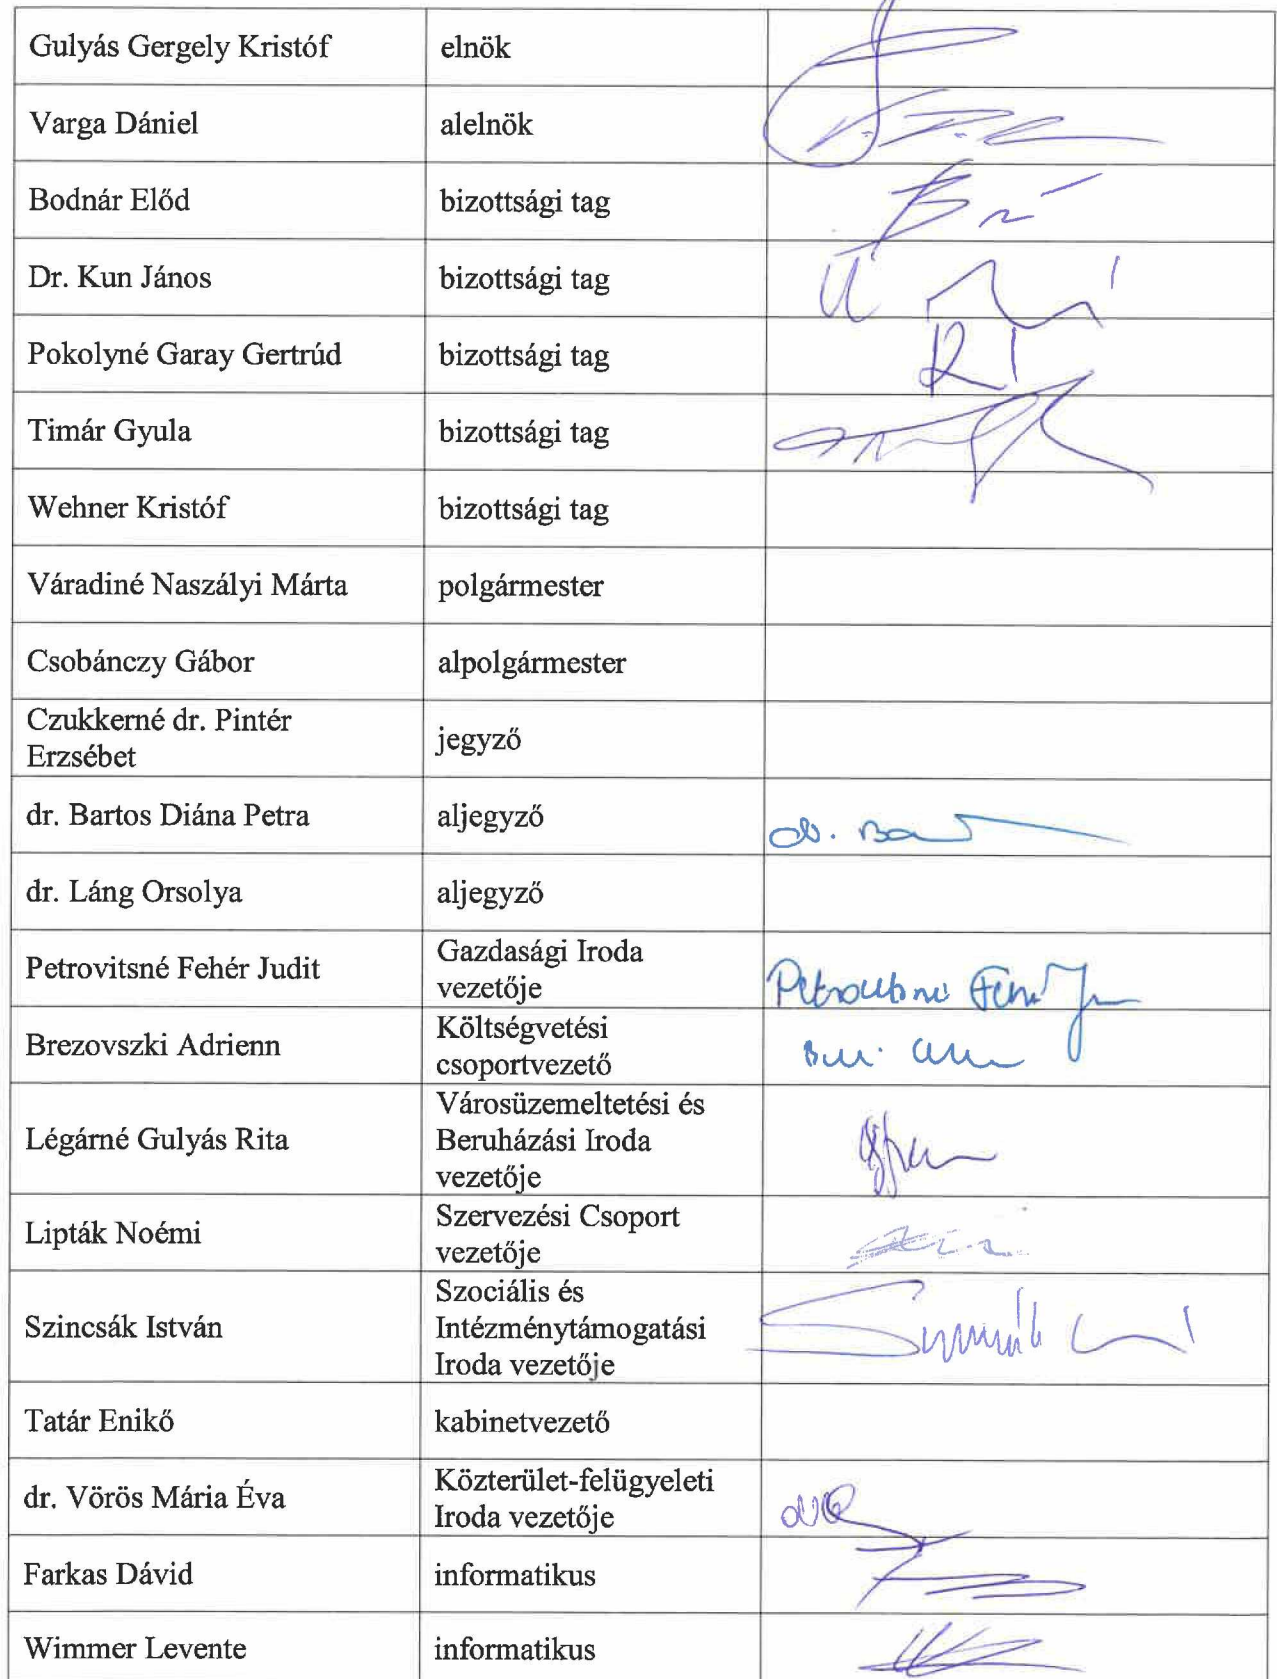 Gulyás Gergely Kristóf elnök
Varga Dániel alelnök
Bodnár Előd bizottsági tag
Dr. Kun János bizottsági tag
Pokolyné Garay Gertrúd bizottsági tag
Timár Gyula bizottsági tag
Wehner Kristóf bizottsági tag
Váradiné Naszályi Márta polgármester
Csobánczy Gábor alpolgármester
Czukkerné dr. Pintér
Erzsébet
jegyző
dr. Bartos Diána Petra aljegyző
dr. Láng Orsolya aljegyző
Petrovitsné Fehér Judit
Gazdasági Iroda
vezetője
Brezovszki Adrienn
Költségvetési
csoportvezető
Légárné Gulyás Rita
Városüzemeltetési és
Beruházási Iroda
vezetője
Lipták Noémi
Szervezési Csoport
vezetője
Szincsák István
Szociális és
Intézménytámogatási
Iroda vezetője
Tatár Enikő kabinetvezető
dr. Vörös Mária Éva
Közterület-felügyeleti
Iroda vezetője
Farkas Dávid informatikus
Wimmer Levente informatikus